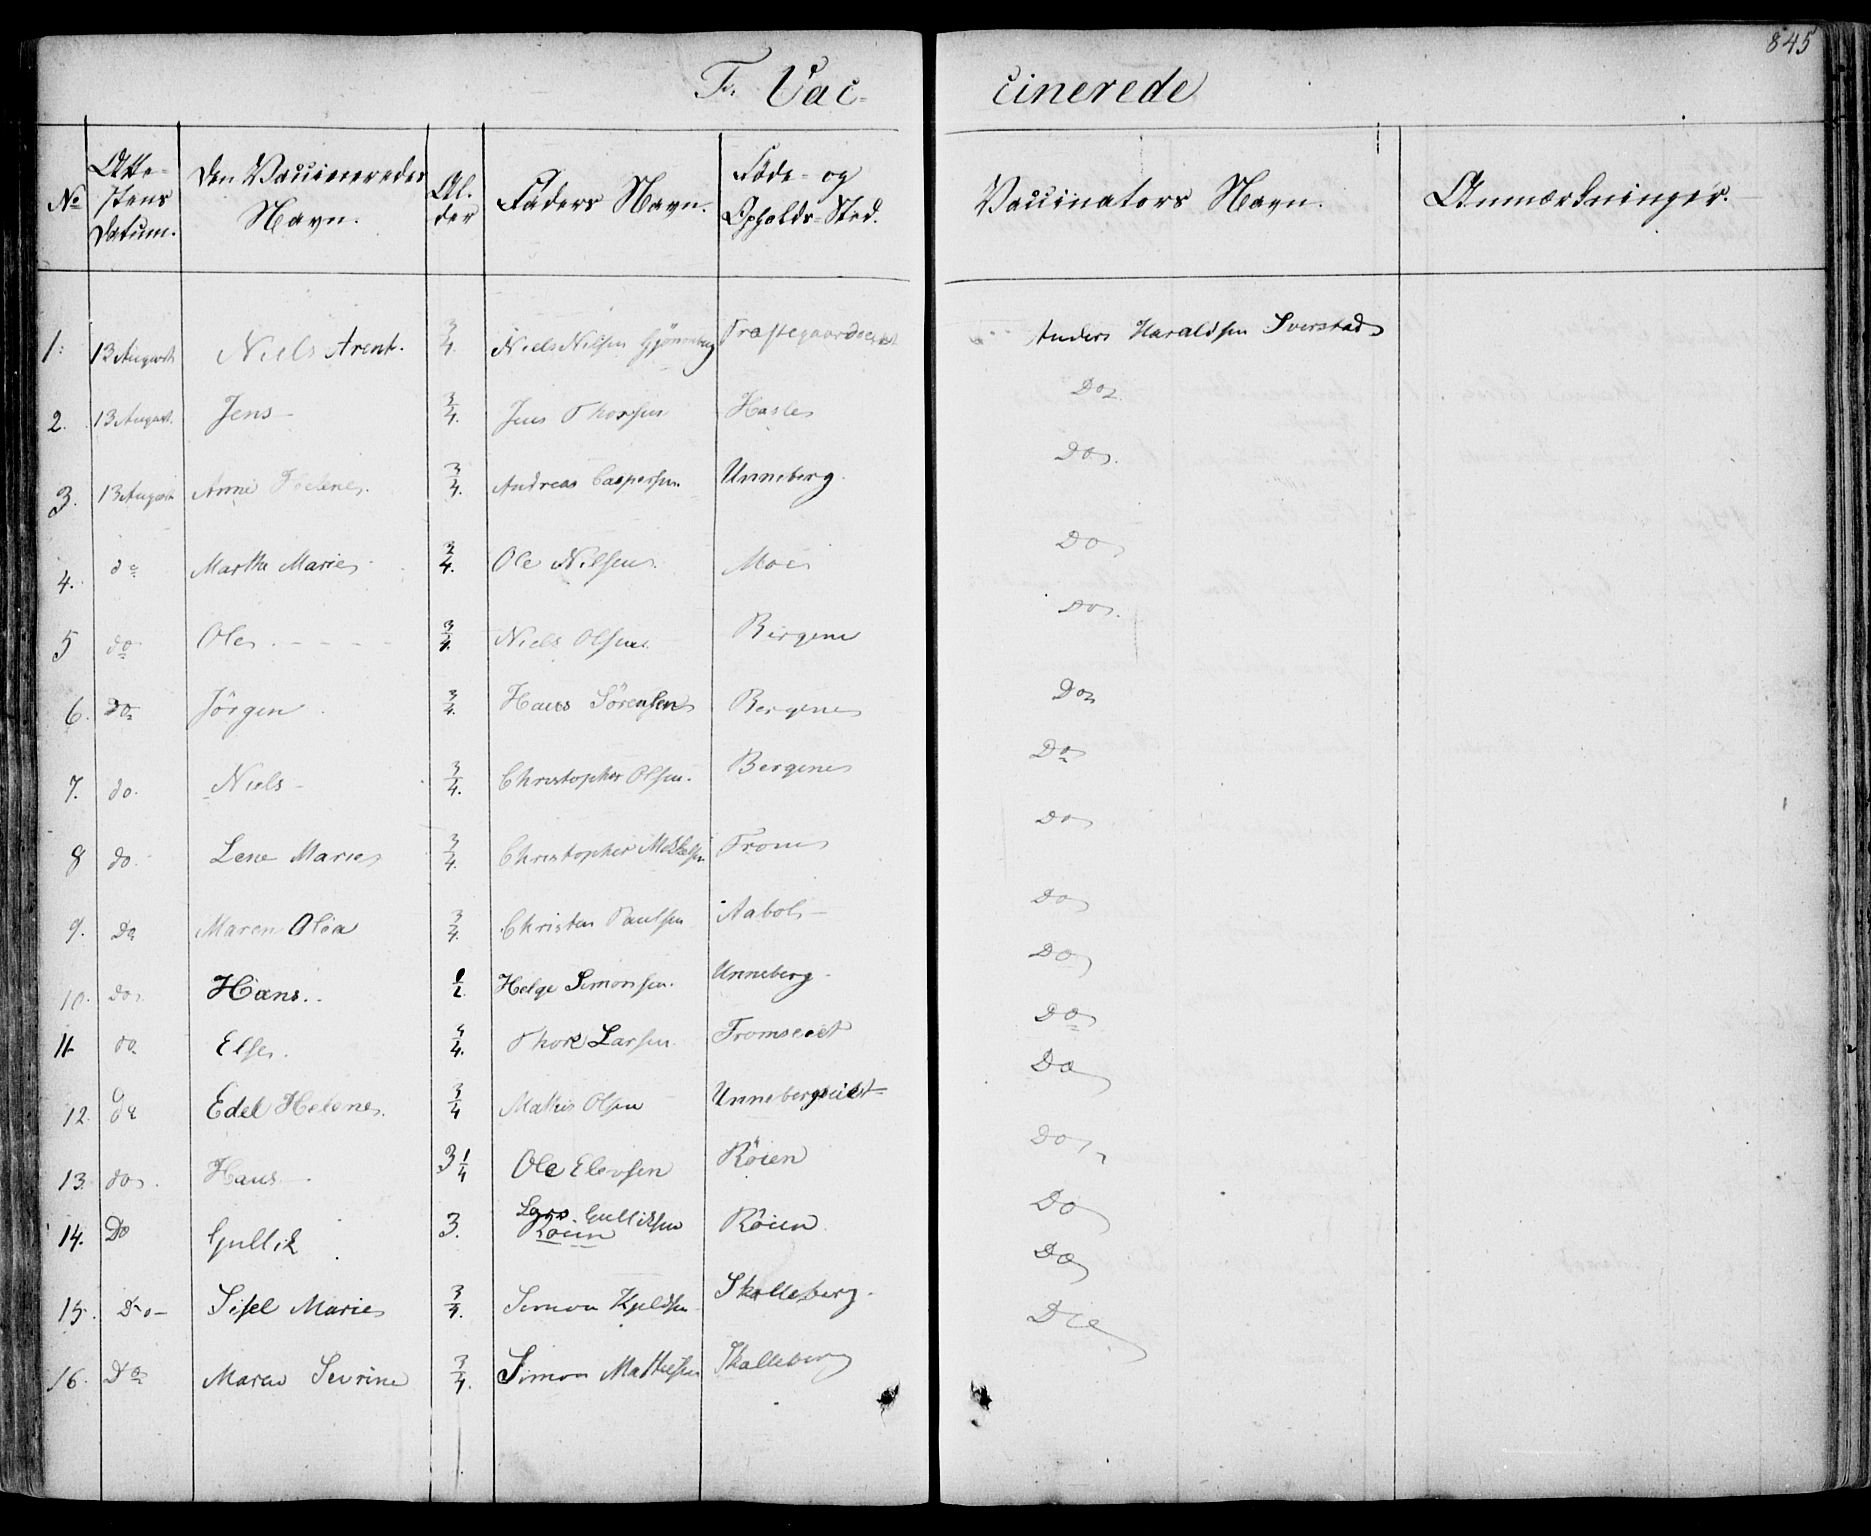 845
F. Vaccinerede
No | Attestens Datum. | Den Vaccineredes Navn. | Alder | Faders Navn. | Føde- og Opholds-Sted. | Vaccinators Navn. | Anmærkninger.
1. | 13 August | Niels Arent. | 3/4. | Niels Nilsen | Præstegaardseiet | Anders Haraldsen Sverstad
2. | 13 August. | Jens | 3/4. | Jens Thorsen | Hasle | Do
3. | 13 August | Anne Helene. | 3/4. | Andreas Caspersen. | Unneberg. | Do.
4. | do | Marthe Marie | 3/4. | Ole Nilsen. | Moe | Do
5 | do | Ole. | 3/4. | Niels Olsen. | Bergene | Do.
6. | Do | Jörgen | 3/4. | Hans Sörensen | Bergene | Do
7. | do. | Niels | 3/4. | Christopher Olsen. | Bergene | Do
8 | do. | Lene Marie | 3/4. | Christopher | From | Do
9. | Do | Maren Olea | 3/4. | Christen Paulsen | Aabol | Do
10. | do | Hans. | 1/2. | Helge Simonsen. | Unneberg | Do
11 | do | Else. | /4. | Thore Larsen | Fromseiet | Do
12. | do | Edel Helene. | 3/4 | Mathis Olsen | Unnebergseiet | Do
13. | do. | Hans | 3 1/4 | Ole Elevsen | Röien | Do
14. | Do | Gullik | 3. | Lars Gulliksen Röien | Röien | Do
15. | Do | Sisel Marie | 3/4. | Simon Kjeldsen | Skalleberg. | Do
16. | Do | Maren Sevrine | 3/4. | Simon Mathesen | Skalleberg | Do